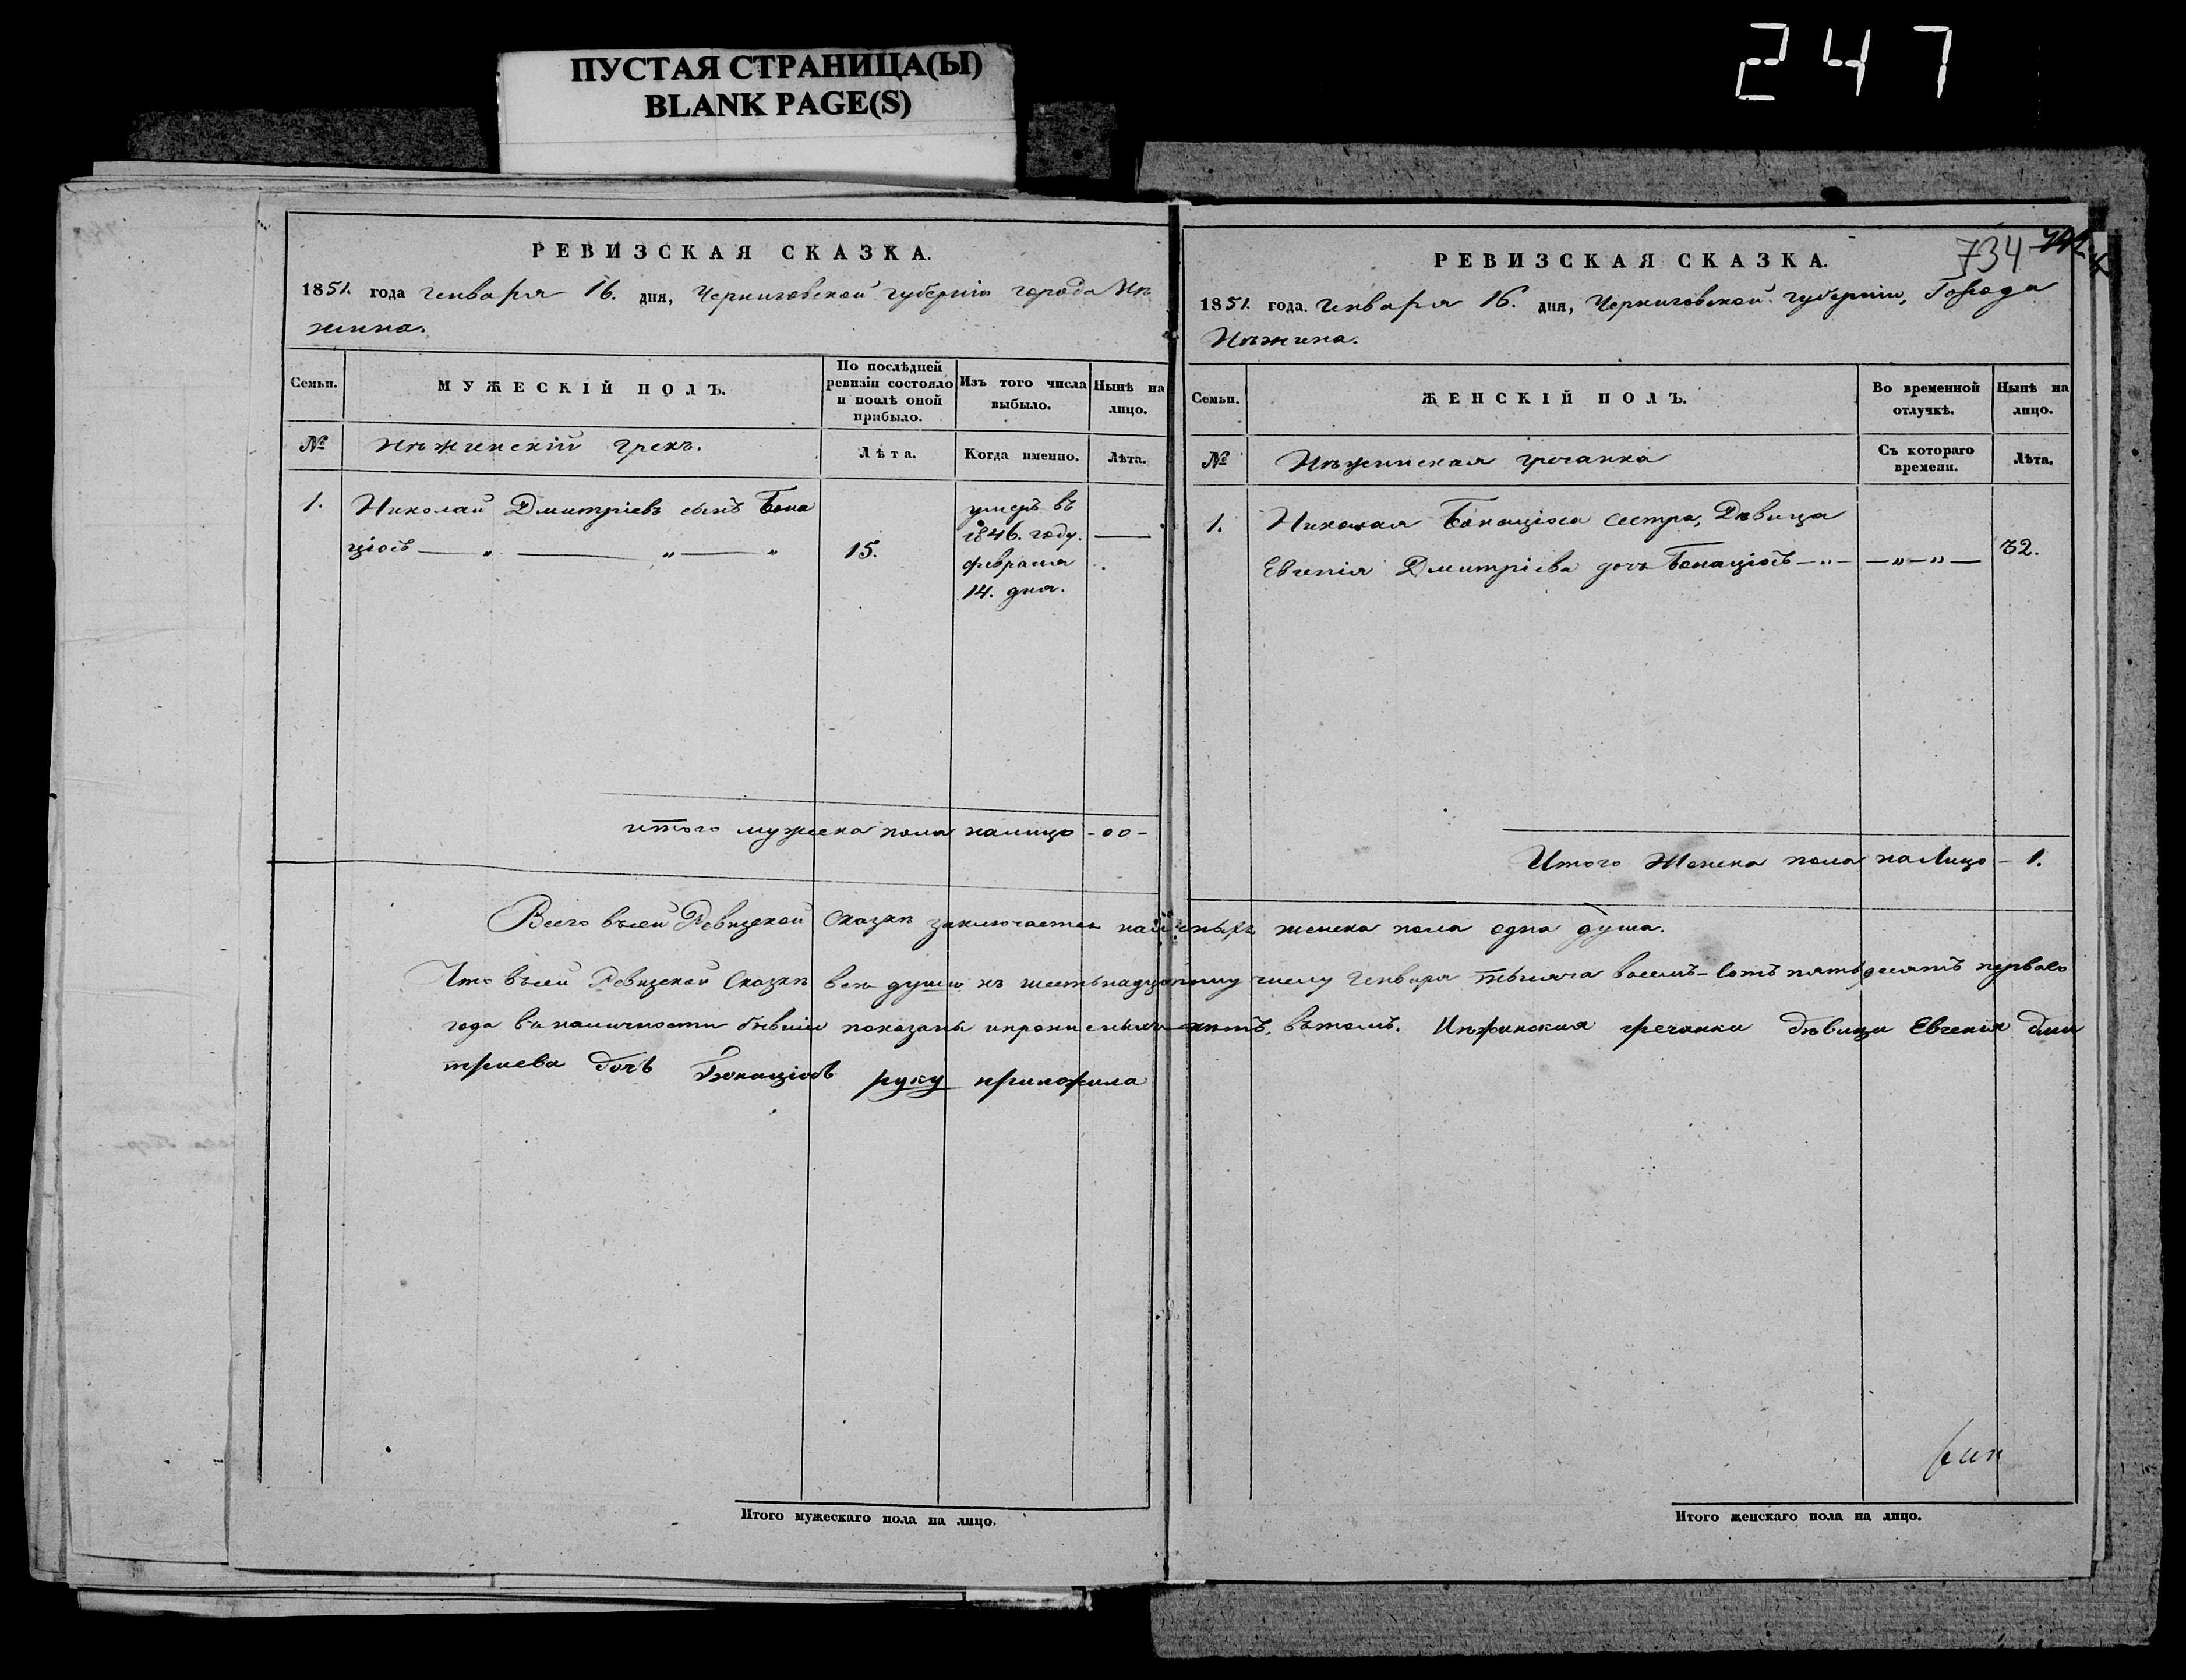 247
ПУСТАЯ СТРАНИЦА(Ы)
BLANK PAGE(S)
РЕВИЗСКАЯ СКАЗКА.
1851. года генваря 16. дня, Черниговской губерніи города Нѣ
жина.
Семьи.
МУЖЕСКІЙ ПОЛЪ.
По послѣдней ревизіи состояло и послѣ оной прибыло.
Изъ того числа выбыло.
Нынѣ на лицо.
№
Нѣжинскій грекъ.
Лѣта.
Когда именно.
Лѣта.
1.
Николай Дмитріевъ сынъ Бона
ціосъ — „ — „ — „
15.
умеръ въ
1846. году.
февраля
14. дня.
—
итого мужеска пола налицо -00-
734
РЕВИЗСКАЯ СКАЗКА.
1851. года. генваря 16. дня, Черниговской губерніи, Города
Нѣжина.
Семьи.
ЖЕНСКІЙ ПОЛЪ.
Во временной отлучкѣ.
Нынѣ на лицо.
№
Нѣжинская гречанка
Съ котораго времени.
Лѣта.
1.
Николая Бонаціоса сестра, Дѣвица
Евгенія Дмитріева дочь Бонаціосъ — „ — — „ — „ —
32.
Итого Женска пола налицо - 1.
Всего въсей Ревизской Сказкѣ заключается наличныхъ женска пола одна душа.
Что въсей Ревизской Сказкѣ всѣ души къ шестьнадцатому числу Генваря тысяча восемъ-сотъ пятьдесятъ перваго
года въналичности бывшіи показаны ипрописныхъ нѣтъ, вътомъ. Нѣжинская гречанка дѣвица Евгенія Дми
триева дочь Бонаціосъ руку приложила
Итого мужескаго пола на лицо.
Итого женскаго пола на лицо.